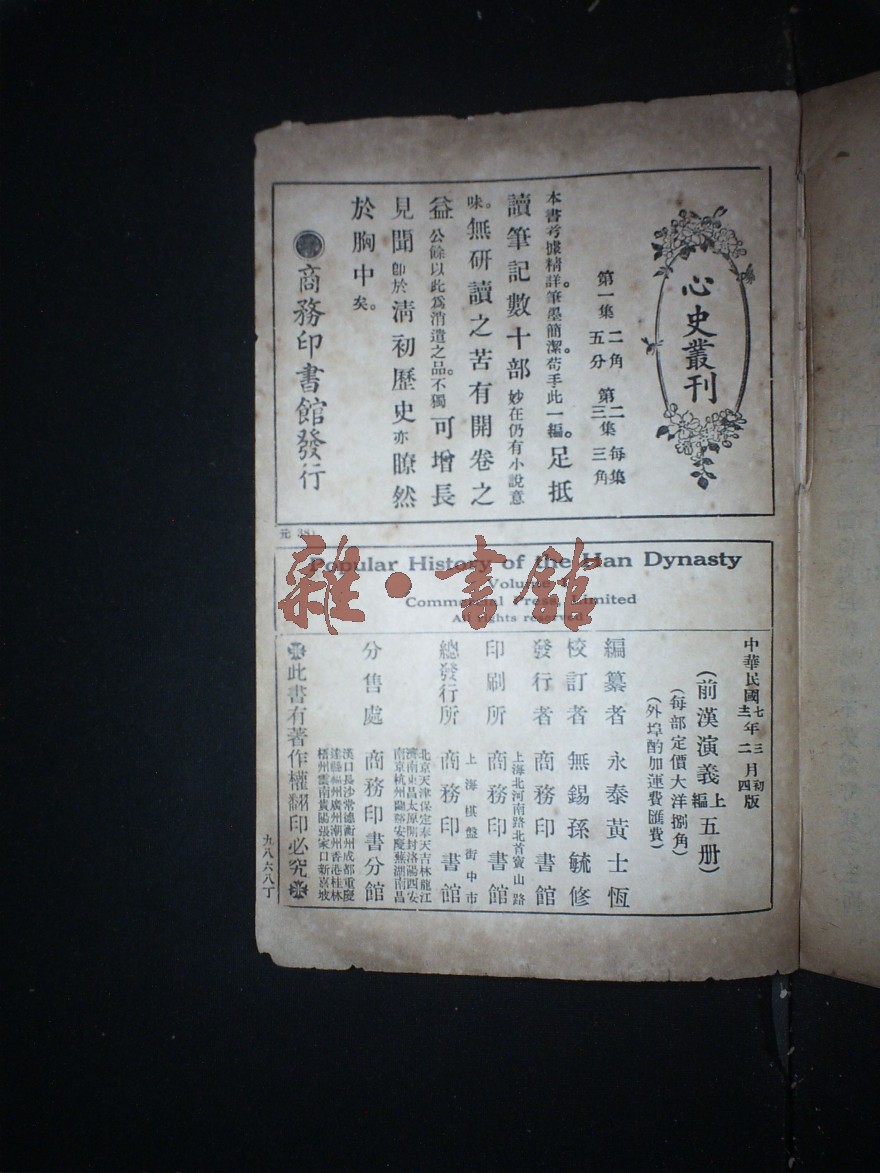 心史叢刊
第一集 二角五分
第二三集 每集三角
本書考據精詳。筆墨簡潔。苟手此一編。足抵
讀筆記數十部妙在仍有小說意
味。無研讀之苦有開卷之
益公餘以此爲消遣之品。不獨可增長
見聞卽於清初歷史亦瞭然
於胸中矣。
商務印書館發行
元 38
Popular History of the Han Dynasty
Commercial Press, Limited
All rights reserved
中華民國七年三月初版
中華民國十二年二月四版
(前漢演義上編五册)
(每部定價大洋捌角)
(外埠酌加運費匯費)
編纂者 永泰黃士恆
校訂者 無錫孫毓修
發行者 商務印書館
上海北河南路北首寶山路
印刷所 商務印書館
上海棋盤街中市
總發行所 商務印書館
北京天津保定奉天吉林龍江
濟南太原開封洛陽西安
南京杭州安慶蕪湖南昌
分售處 商務印書分館
漢口長沙常德衡州成都重慶
福州廣州潮州香港桂林
梧州雲南貴陽張家口新嘉坡
此書有著作權翻印必究
九八六八丁
雜·書館